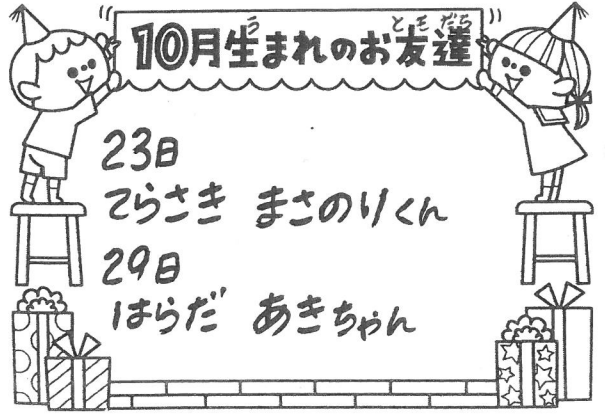 10月生まれのお友達
23日
てらさき まさのりくん
29日
はらだ あきちゃん